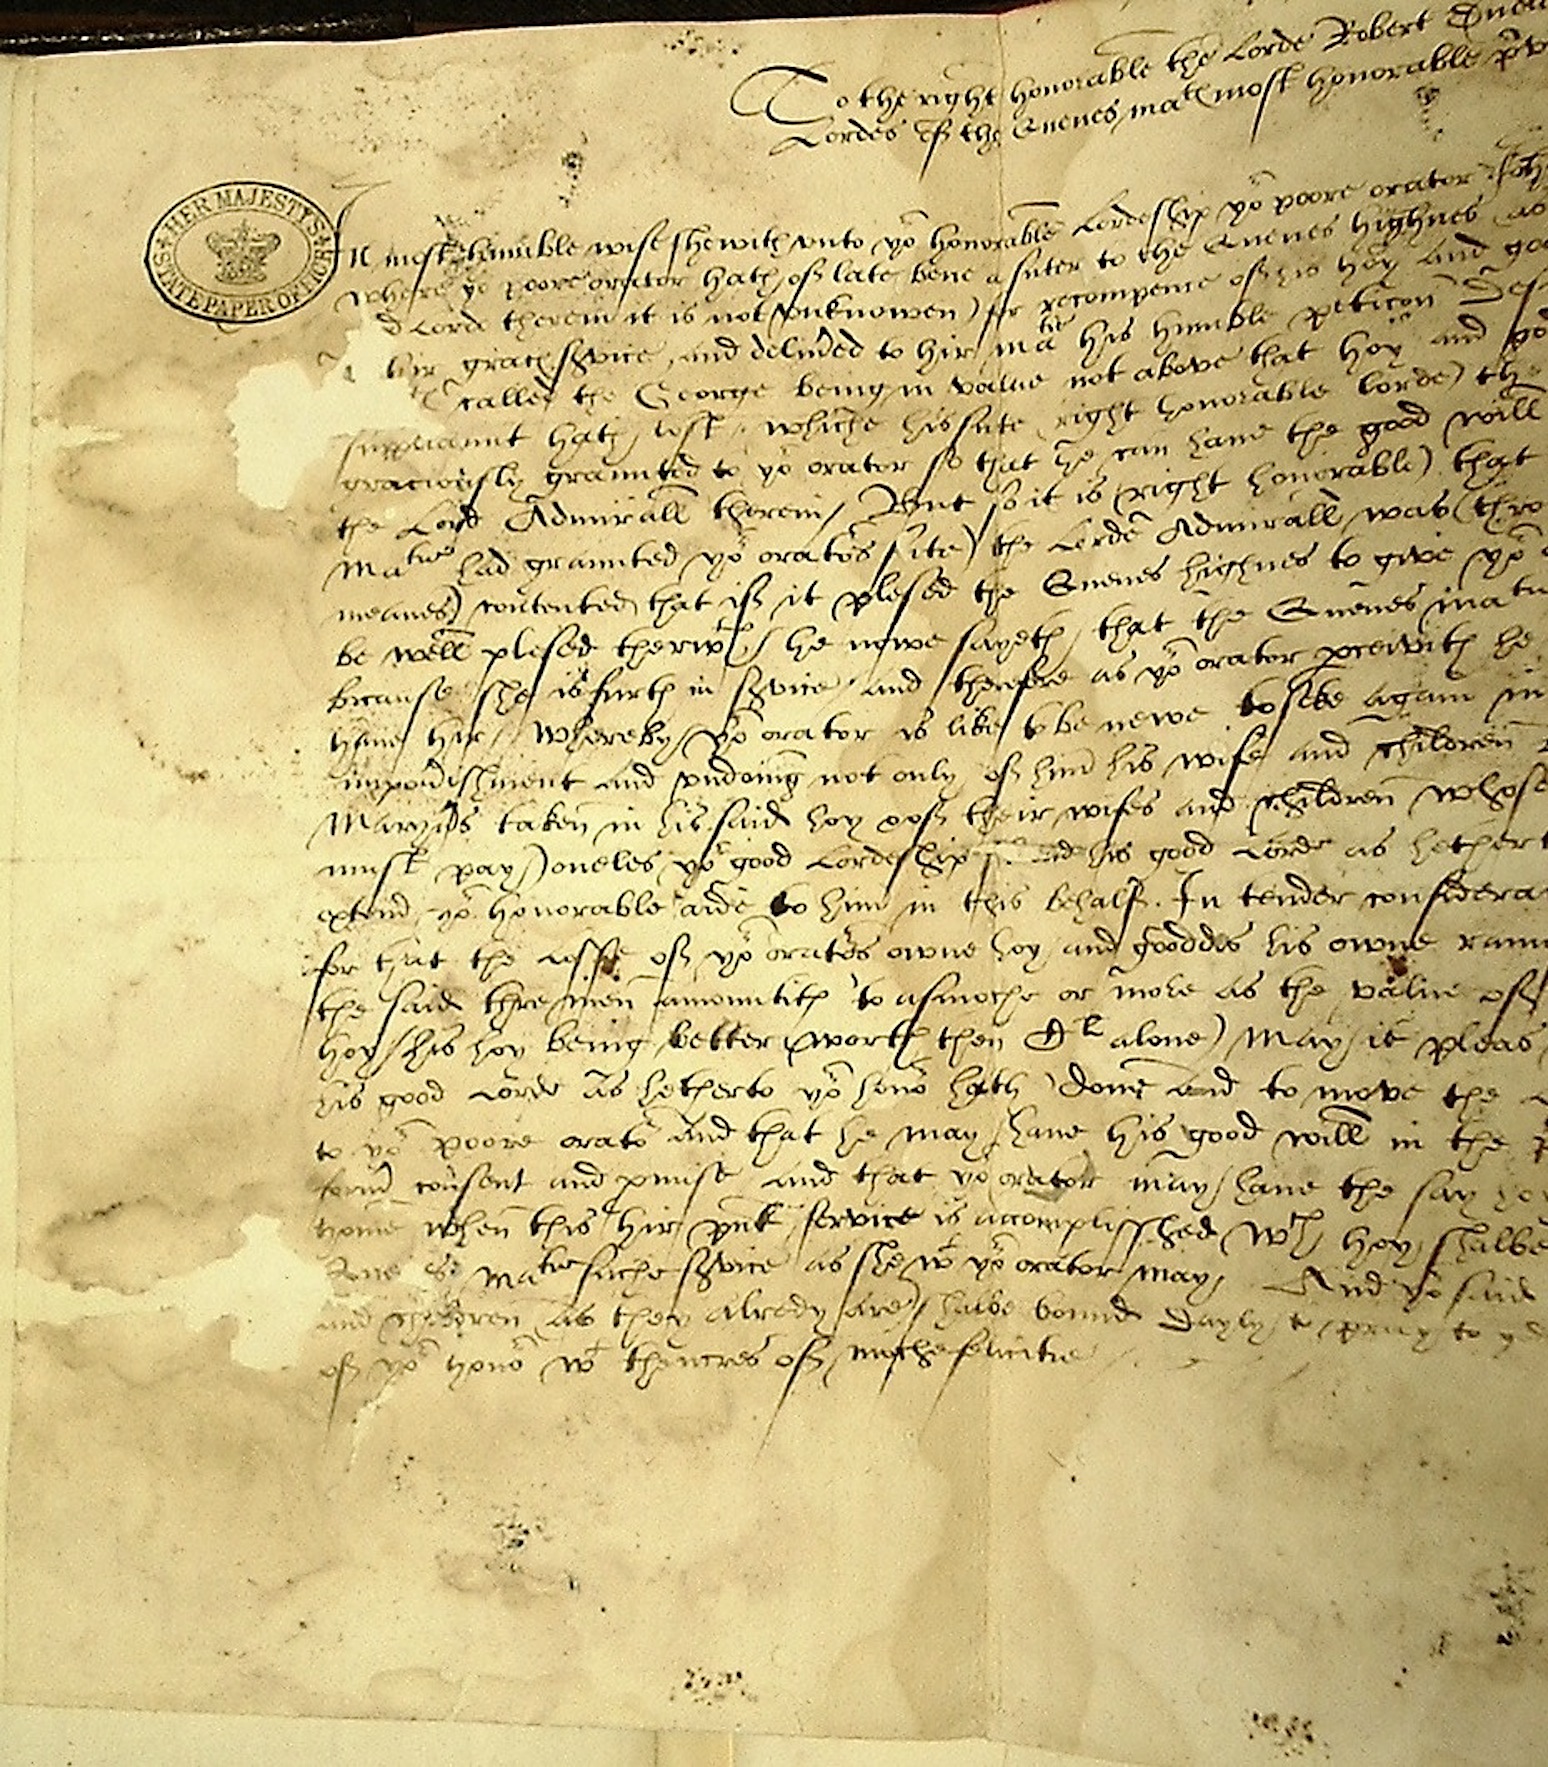 To the right honorable the Lorde Robert
Lordes of the Quenes matꝭ most honorable
HER MAJESTY'S
STATE PAPER OFFICE
In most humble wise shewith vnto yor honorable Lordeship yor poore orator
where yor poore orator hath of late bene a suter to the Quenes highnes as
d Lorde therein it is not vnknowen) for recompence of his hoy and
hir graces service and delivred to hir matie his humble peticon
called the George being in value not above that hoy and
suppliaunt hath lost, whiche his sute (right honorable lorde) the
graciously graunted to yor orator so that he can have the good will
the Lord Admirall therein / But so it is (right honorable) that
maties had graunted yor orators sute) the Lorde Admirall was (thro
meanes) contented that if it plesed the Quenes highnes to give yor
be well plesed therwth / he nowe sayeth that the Quenes matie
bicause she is furth in service / and therefore as yor orator perceivith he
have hir / Whereby yor orator is like to be newe to seke again in
impovrishment and vndoing not only of him his wife and children
Maryners taken in his said hoy & of their wifes and children whose
must pay) oneles yor good Lordeship his good Lorde as hetherto
extend yor honorable aide to him in this behalf. In tender considera
for that the losse of yor orators owne hoy and gooddes his owne raun
the said thre men amountith to asmoche or more as the value of
hoy (his hoy being better worth then Cl alone) May it pleas
his good Lorde as hetherto yor honor hath done and to move the
to yor poore orator and that he may have his good will in the
consent and pmise and that yor orator may have the said hoy
home when this hir pnt service is accomplisshed wch hoy shalbe
matie suche service as she wt yor orator may. And yor said
and children as they alredy are shalbe bound dayly to pray to
of yor honor wt thencres of moche felicitie